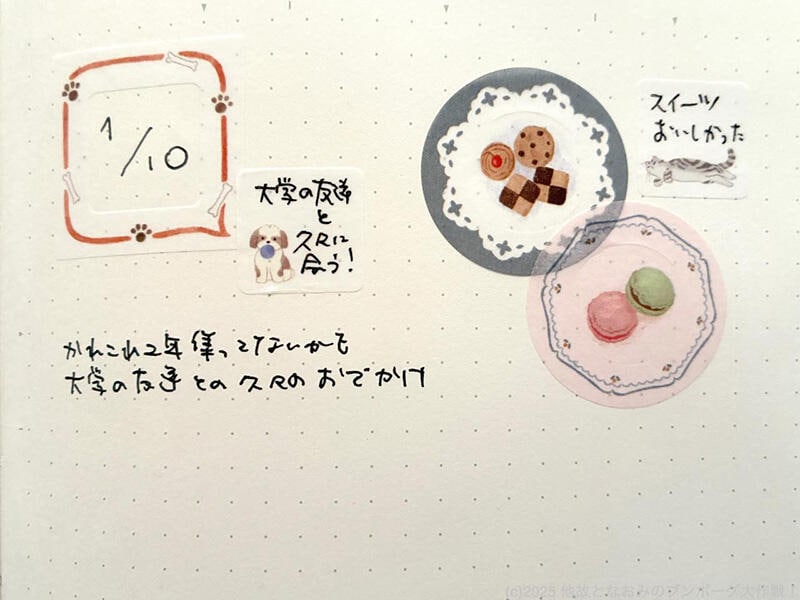 1/10
大学の友達
と
久々に
会う!
スイーツ
おいしかった
かれこれ2年
大学の友達との久々のおでかけ
(c)2025 他故となおみのブンボーグ大作戦!